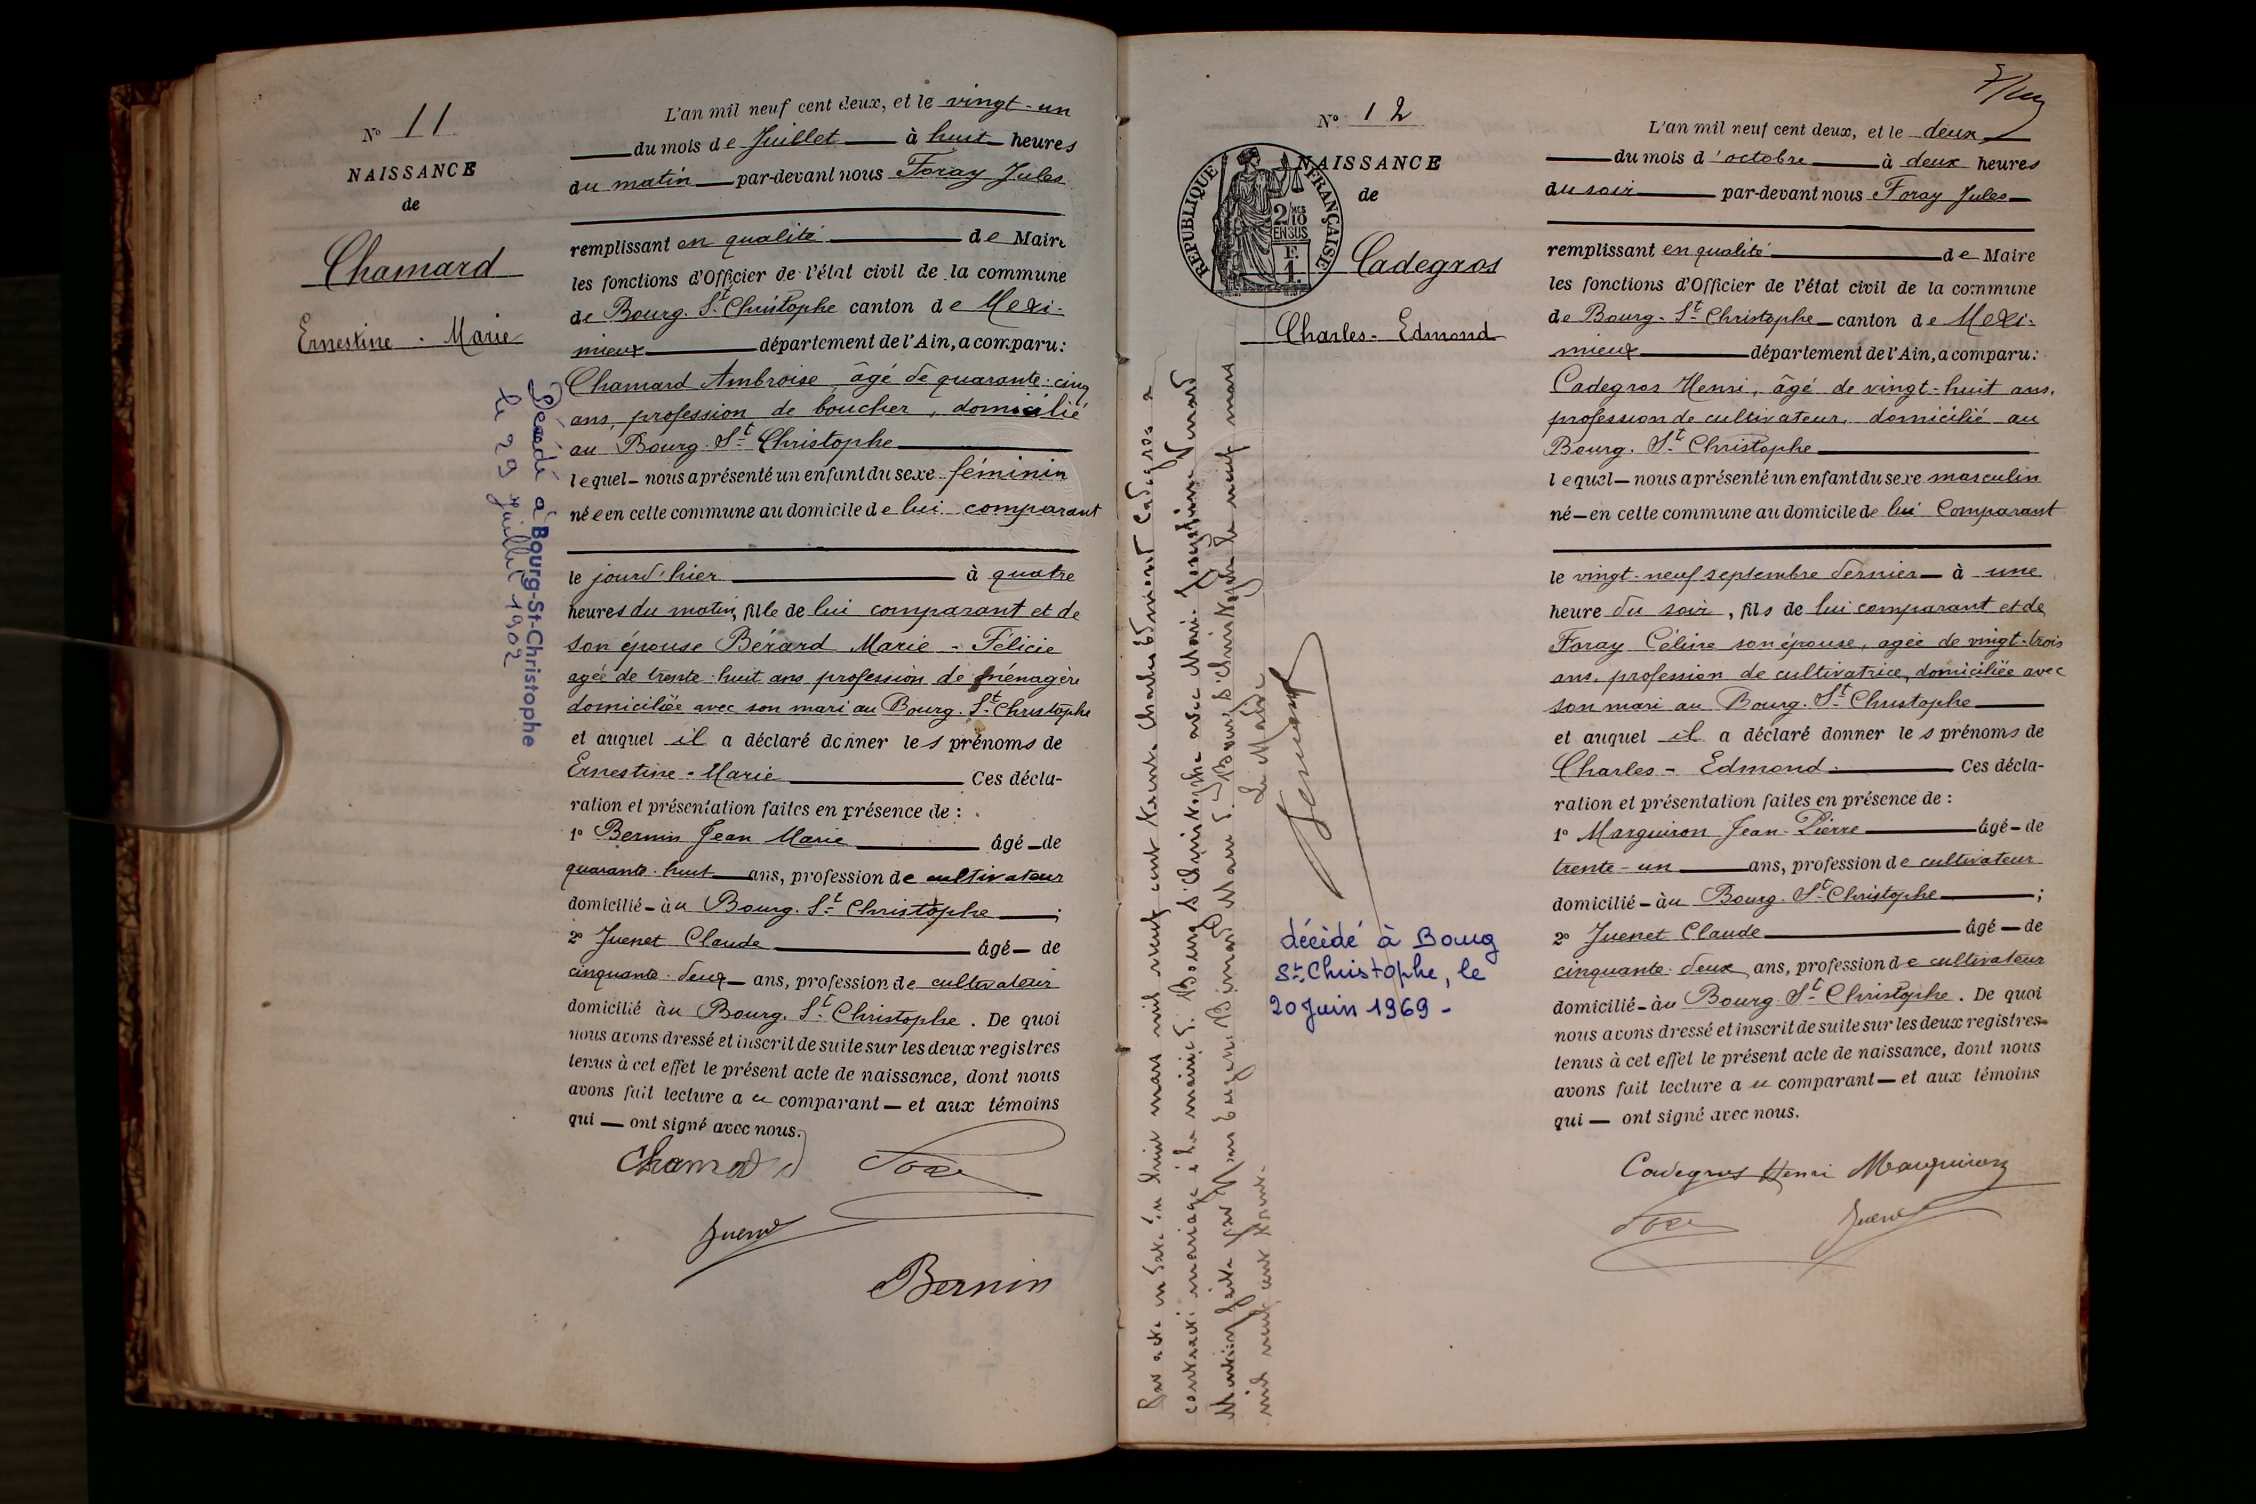 N° 11
NAISSANCE
de
Chamard
Ernestine - Marie
Décédé à Bourg-St-Christophe
le 29 juillet 1902
L'an mil neuf cent deux, et le vingt-un
du mois de Juillet à huit heures
du matin par-devant nous Foray Jules
remplissant en qualité de Maire
les fonctions d'Officier de l'état civil de la commune
de Bourg. St Christophe canton de Mexi-
mieux département de l'Ain, a comparu:
Chamard Ambroise, âgé de quarante-cinq
ans, profession de boucher, domicilié
au Bourg. St Christophe
lequel nous a présenté un enfant du sexe féminin
née en cette commune au domicile de lui comparant
le jourd'hier à quatre
heures du matin, fille de lui comparant et de
son épouse Bérard Marie - Félicie
agée de trente-huit ans profession de ménagère
domiciliée avec son mari au Bourg. St Christophe
et auquel il a déclaré donner les prénoms de
Ernestine - Marie Ces décla-
ration et présentation faites en présence de :
1° Bernin Jean Marie âgé de
quarante-huit ans, profession de cultivateur
domicilié au Bourg. St Christophe ;
2° Juenet Claude âgé de
cinquante-deux ans, profession de cultivateur
domicilié àu Bourg. St Christophe. De quoi
nous avons dressé et inscrit de suite sur les deux registres
tenus à cet effet le présent acte de naissance, dont nous
avons fait lecture au comparant et aux témoins
qui ont signé avec nous.
Chamard
Juenet
Bernin
N° 12
NAISSANCE
de
REPUBLIQUE FRANÇAISE
2/10 MES
EN SUS
F.
1.
Cadegros
Charles - Edmond
Par acte en date du huit mars mil neuf cent trente Charles Edmond Cadegros a
contracté mariage à la mairie de Bourg St Christophe avec Marie
Mention faite par Nous Maire de Bourg St Christophe le neuf mars
mil neuf cent trente.
Le Maire
décédé à Bourg
St Christophe, le
20 Juin 1969 -
L'an mil neuf cent deux, et le deux
du mois d'octobre à deux heures
du soir par-devant nous Foray Jules
remplissant en qualité de Maire
les fonctions d'Officier de l'état civil de la commune
de Bourg. St Christophe canton de Mexi-
mieux département de l'Ain, a comparu:
Cadegros Henri, âgé de vingt-huit ans,
profession de cultivateur, domicilié au
Bourg. St Christophe
lequel nous a présenté un enfant du sexe masculin
né en cette commune au domicile de lui Comparant
le vingt-neuf septembre dernier à une
heure du soir, fils de lui comparant et de
Foray Céline son épouse, agée de vingt-trois
ans, profession de cultivatrice, domiciliée avec
son mari au Bourg. St Christophe
et auquel il a déclaré donner les prénoms de
Charles - Edmond. Ces décla-
ration et présentation faites en présence de :
1° Marguiron Jean-Pierre âgé de
trente-un ans, profession de cultivateur
domicilié àu Bourg. St Christophe ;
2° Juenet Claude âgé de
cinquante-deux ans, profession de cultivateur
domicilié àu Bourg St Christophe. De quoi
nous avons dressé et inscrit de suite sur les deux registres
tenus à cet effet le présent acte de naissance, dont nous
avons fait lecture au comparant et aux témoins
qui ont signé avec nous.
Cadegros Henri Marguiron
Juenet